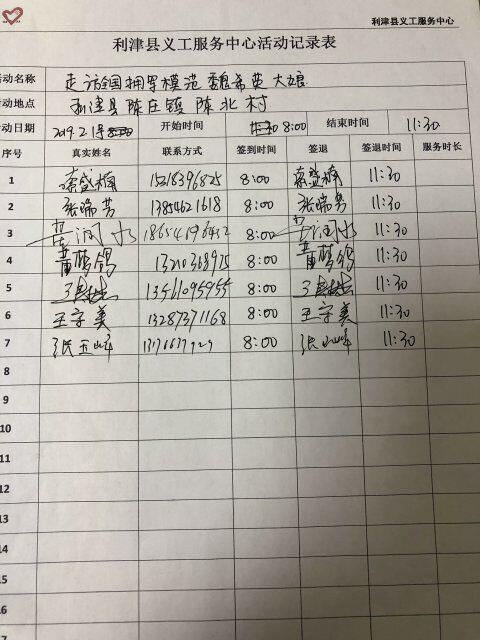 利津县义工服务中心
利津县义工服务中心活动记录表
活动名称 走访全国拥军模范魏希英大娘
活动地点 利津县陈庄镇陈北村
活动日期 2019.2.1 开始时间 8:00 结束时间 11:30
序号 真实姓名 联系方式 签到时间 签退 签退时间 服务时长
1 綦盛楠 15218396825 8:00 綦盛楠 11:30
2 张瑞芳 13854621618 8:00 张瑞芳 11:30
3 18654196412 8:00 11:30
4 13210368915 8:00 11:30
5 13561095955 8:00 11:30
6 王守美 13287371168 8:00 王守美 11:30
7 张玉峰 8:00 张玉峰 11:30
8
9
10
11
12
13
14
15
16